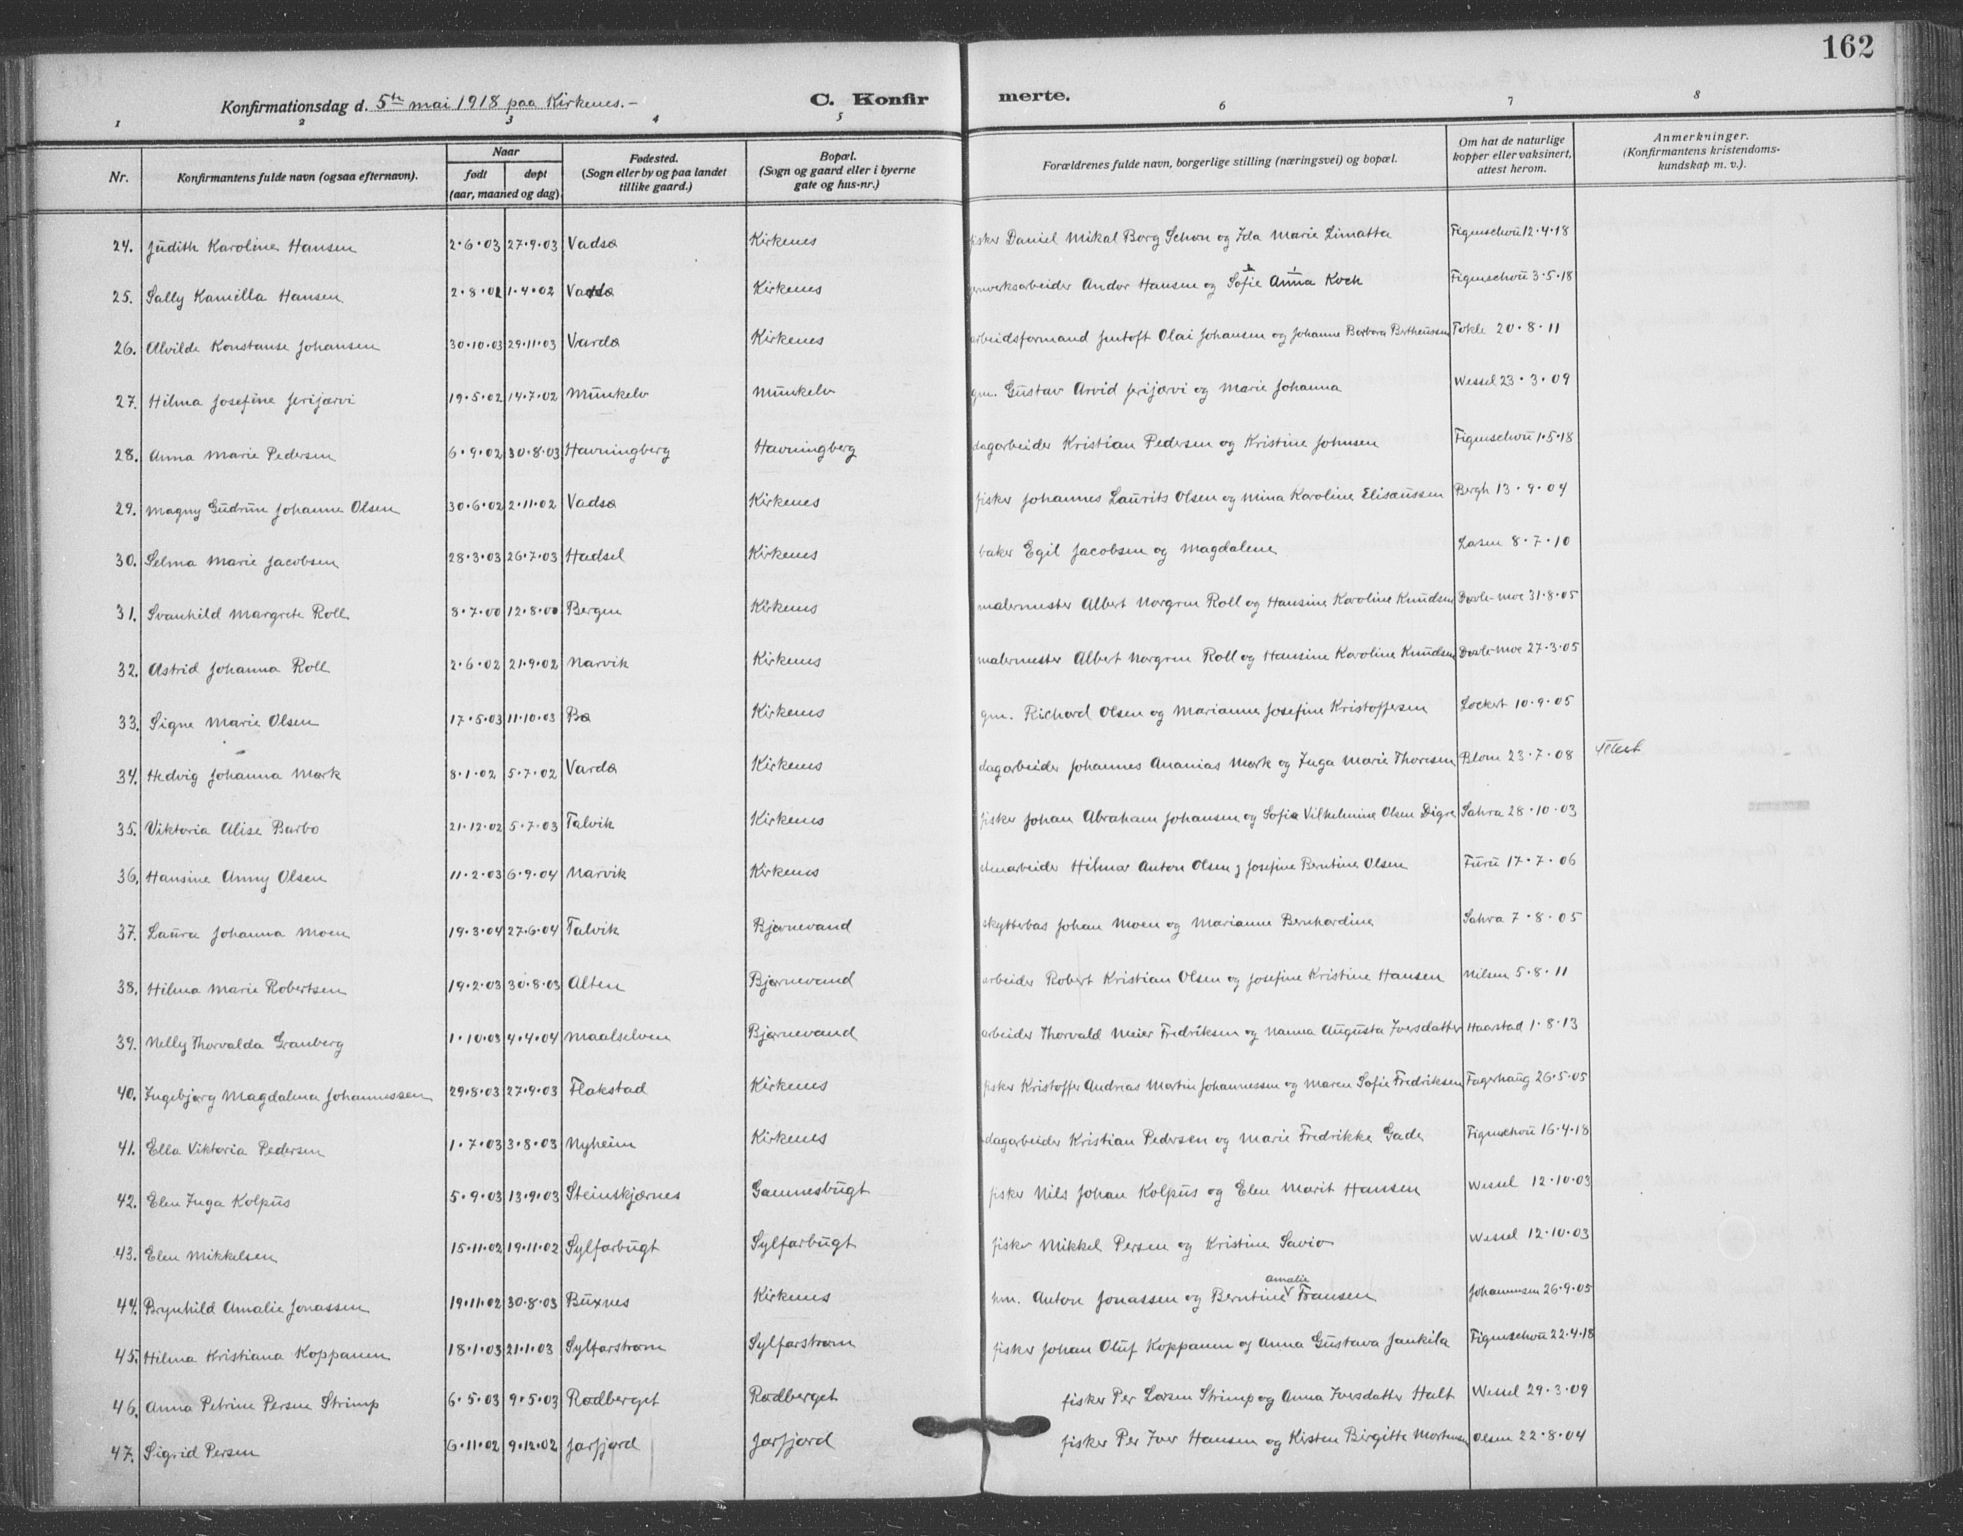 162
Konfirmationsdag d. 5te mai 1918 paa Kirkenes.-
C. Konfirmerte.
1 2 3 4 5 6 7 8
Nr. Konfirmantens fulde navn (ogsaa efternavn). Naar født døpt (aar, maaned og dag) Fødested. (Sogn eller by og paa landet tillike gaard.) Bopæl. (Sogn og gaard eller i byerne gate og hus-nr.) Forældrenes fulde navn, borgerlige stilling (næringsvei) og bopæl. Om hat de naturlige kopper eller vaksinert, attest herom. Anmerkninger. (Konfirmantens kristendoms-kundskap m. v.).
24. Judith Karoline Hansen 2·6·03 27·9·03 Vadsø Kirkenes fisker Daniel Mikal Borg Schøn og Ida Marie Limatta Figenschou 12·4·18
25. Sally Kamilla Hansen 2·8·01 1·4·02 Vadsø Kirkenes jernverksarbeider Andor Hansen og Sofie Anna Koch Figenschou 3·5·18
26. Alvilde Konstanse Johansen 30·10·03 29·11·03 Vardø Kirkenes arbeidsformand Jentoft Olai Johansen og Johanne Barbara Bertheussen Tokle 20·8·11
27. Hilma Josefine Jerijærvi 19·5·02 14·7·02 Munkelv Munkelv gm. Gustav Arvid Jerijærvi og Marie Johanna Wessel 23·3·09
28. Anna Marie Pedersen 6·9·02 30·8·03 Havningberg Havningberg dagarbeider Kristian Pedersen og Kristine Johnsen Figenschou 1·5·18
29. Magny Gudrun Johanne Olsen 30·6·02 2·11·02 Vadsø Kirkenes fisker Johannes Laurits Olsen og Mina Karoline Elisæussen Bergh 13·9·04
30. Selma Marie Jacobsen 28·3·03 26·7·03 Hadsel Kirkenes baker Egil Jacobsen og Magdalene Larsen 8·7·10
31. Svanhild Margrete Roll 8·7·00 12·8·00 Bergen Kirkenes malermester Albert Norgren Roll og Hansine Karoline Knudsen Døvle-Moe 31·8·05
32. Astrid Johanna Roll 2·6·02 21·9·02 Narvik Kirkenes malermester Albert Norgren Roll og Hansine Karoline Knudsen Døvle-Moe 27·3·05
33. Signe Marie Olsen 17·5·03 11·10·03 Bø Kirkenes gm. Richard Olsen og Marianne Josefine Kristoffersen Lockert 10·9·05
34. Hedvig Johanna Mørk 8·1·02 5·7·02 Vardø Kirkenes dagarbeider Johannes Ananias Mørk og Inga Marie Thoresen Blom 23·7·08 attest
35. Viktoria Alise Barbo 21·12·02 5·7·03 Talvik Kirkenes fisker Johan Abraham Johansen og Sofie Vilhelmine Olsen Digre Sahra 28·10·03
36. Hansine Anny Olsen 11·2·03 6·9·04 Narvik Kirkenes stenarbeider Hilmar Anton Olsen og Josefine Berntine Olsen Furu 17·7·06
37. Laura Johanna Moen 19·3·04 27·6·04 Talvik Bjørnevand skytterbas Johan Moen og Marianne Bernhardine Sahra 7·8·05
38. Hilma Marie Robertsen 19·2·03 30·8·03 Alten Bjørnevand arbeider Robert Kristian Olsen og Josefine Kristine Hansen Nilsen 5·8·11
39. Nelly Thorvalda Granberg 1·10·03 4·4·04 Maalselven Bjørnevand arbeider Thorvald Meier Fredriksen og Nanna Augusta Iversdatter Haarstad 1·8·13
40. Ingebjørg Magdalena Johannessen 29·8·03 27·9·03 Flakstad Kirkenes fisker Kristoffer Andreas Martin Johannessen og Maren Sofie Fredriksen Fagerhaug 26·5·05
41. Ella Viktoria Pedersen 1·7·03 3·8·03 Nyheim Kirkenes dagarbeider Kristian Pedersen og Marie Fredrikke Gade Figenschou 16·4·18
42. Elen Inga Kolpus 5·9·03 13·9·03 Steinskjærnes Gamnesbugt fisker Nils Johan Kolpus og Elen Marit Hansen Wessel 12·10·03
43. Elen Mikkelsen 15·11·02 19·11·02 Sylfarbugt Sylfarbugt fisker Mikkel Persen og Kristine Savio Wessel 12·10·03
44. Brynhild Amalie Jonassen 19·11·02 30·8·03 Buxnes Kirkenes hm. Anton Jonassen og Berntine Amalie Fransen Johannesen 26·9·05
45. Hilma Kristiana Koppanen 18·1·03 21·1·03 Sylfarstrøm Sylfarstrøm fisker Johan Oluf Koppanen og Anna Gustava Jankila Figenschou 22·4·18
46. Anna Petrine Persen Strimp 6·5·03 9·5·03 Rødberget Rødberget fisker Per Larsen Strimp og Anna Iversdatter Halt Wessel 29·3·09
47. Sigrid Persen 6·11·02 9·12·02 Jarfjord Jarfjord fisker Per Iver Hansen og Kirsten Birgitte Mortensen Olsen 22·8·04